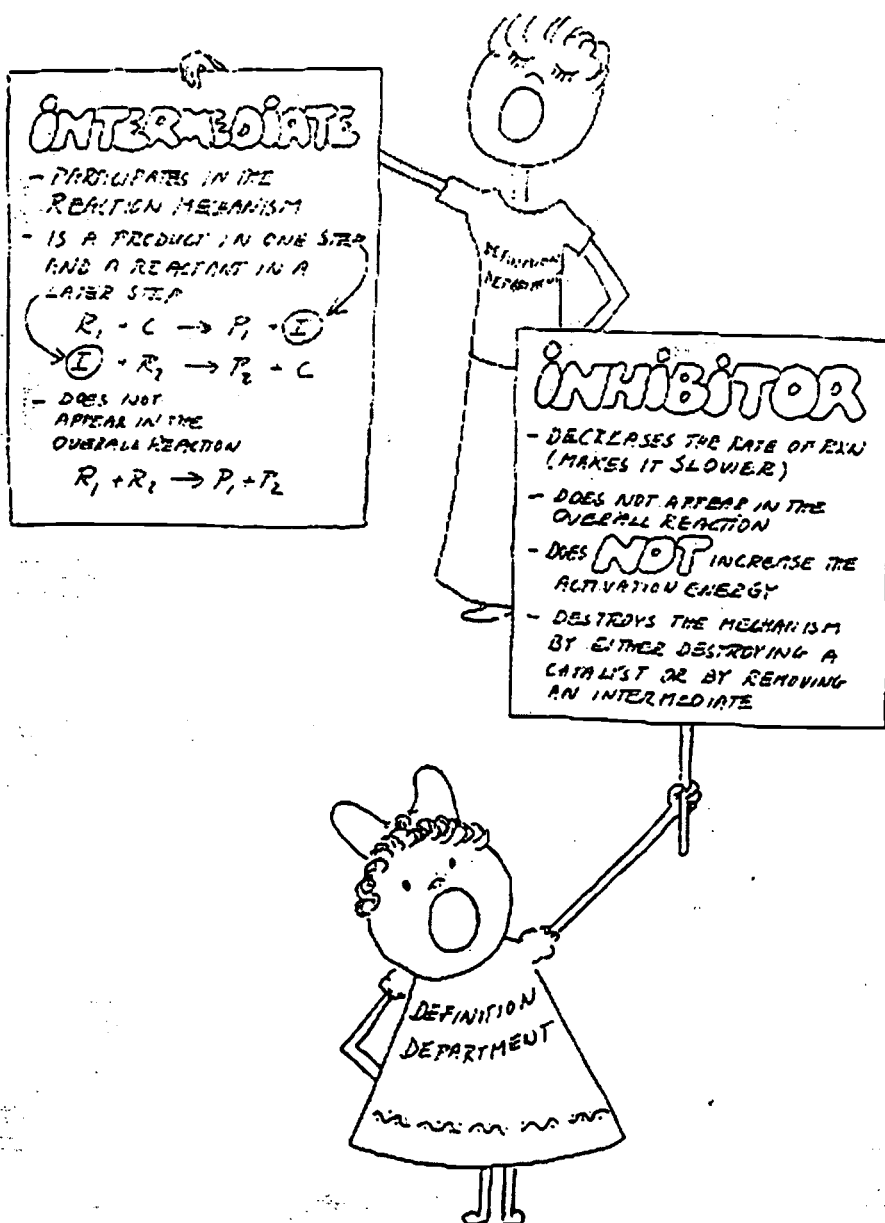 INTERMEDIATE
- PARTICIPATES IN THE
REACTION MECHANISM
- IS A PRODUCT IN ONE STEP
AND A REACTANT IN A
LATER STEP
R₁ + C → P₁ + I
I + R₂ → P₂ + C
- DOES NOT
APPEAR IN THE
OVERALL REACTION
R₁ + R₂ → P₁ + P₂
DEFINITION
DEPARTMENT
INHIBITOR
- DECREASES THE RATE OF RXN
(MAKES IT SLOWER)
- DOES NOT APPEAR IN THE
OVERALL REACTION
- DOES NOT INCREASE THE
ACTIVATION ENERGY
- DESTROYS THE MECHANISM
BY EITHER DESTROYING A
CATALYST OR BY REMOVING
AN INTERMEDIATE
DEFINITION
DEPARTMENT